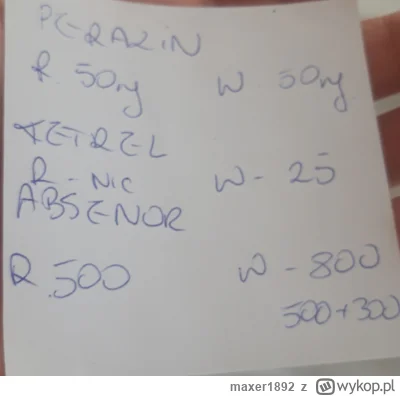 PERAZIN
R. 50mg W 50mg
KETREL
R - NIC W - 25
ABSENOR
R 500 W - 800
500+300
maxer1892 z wykop.pl